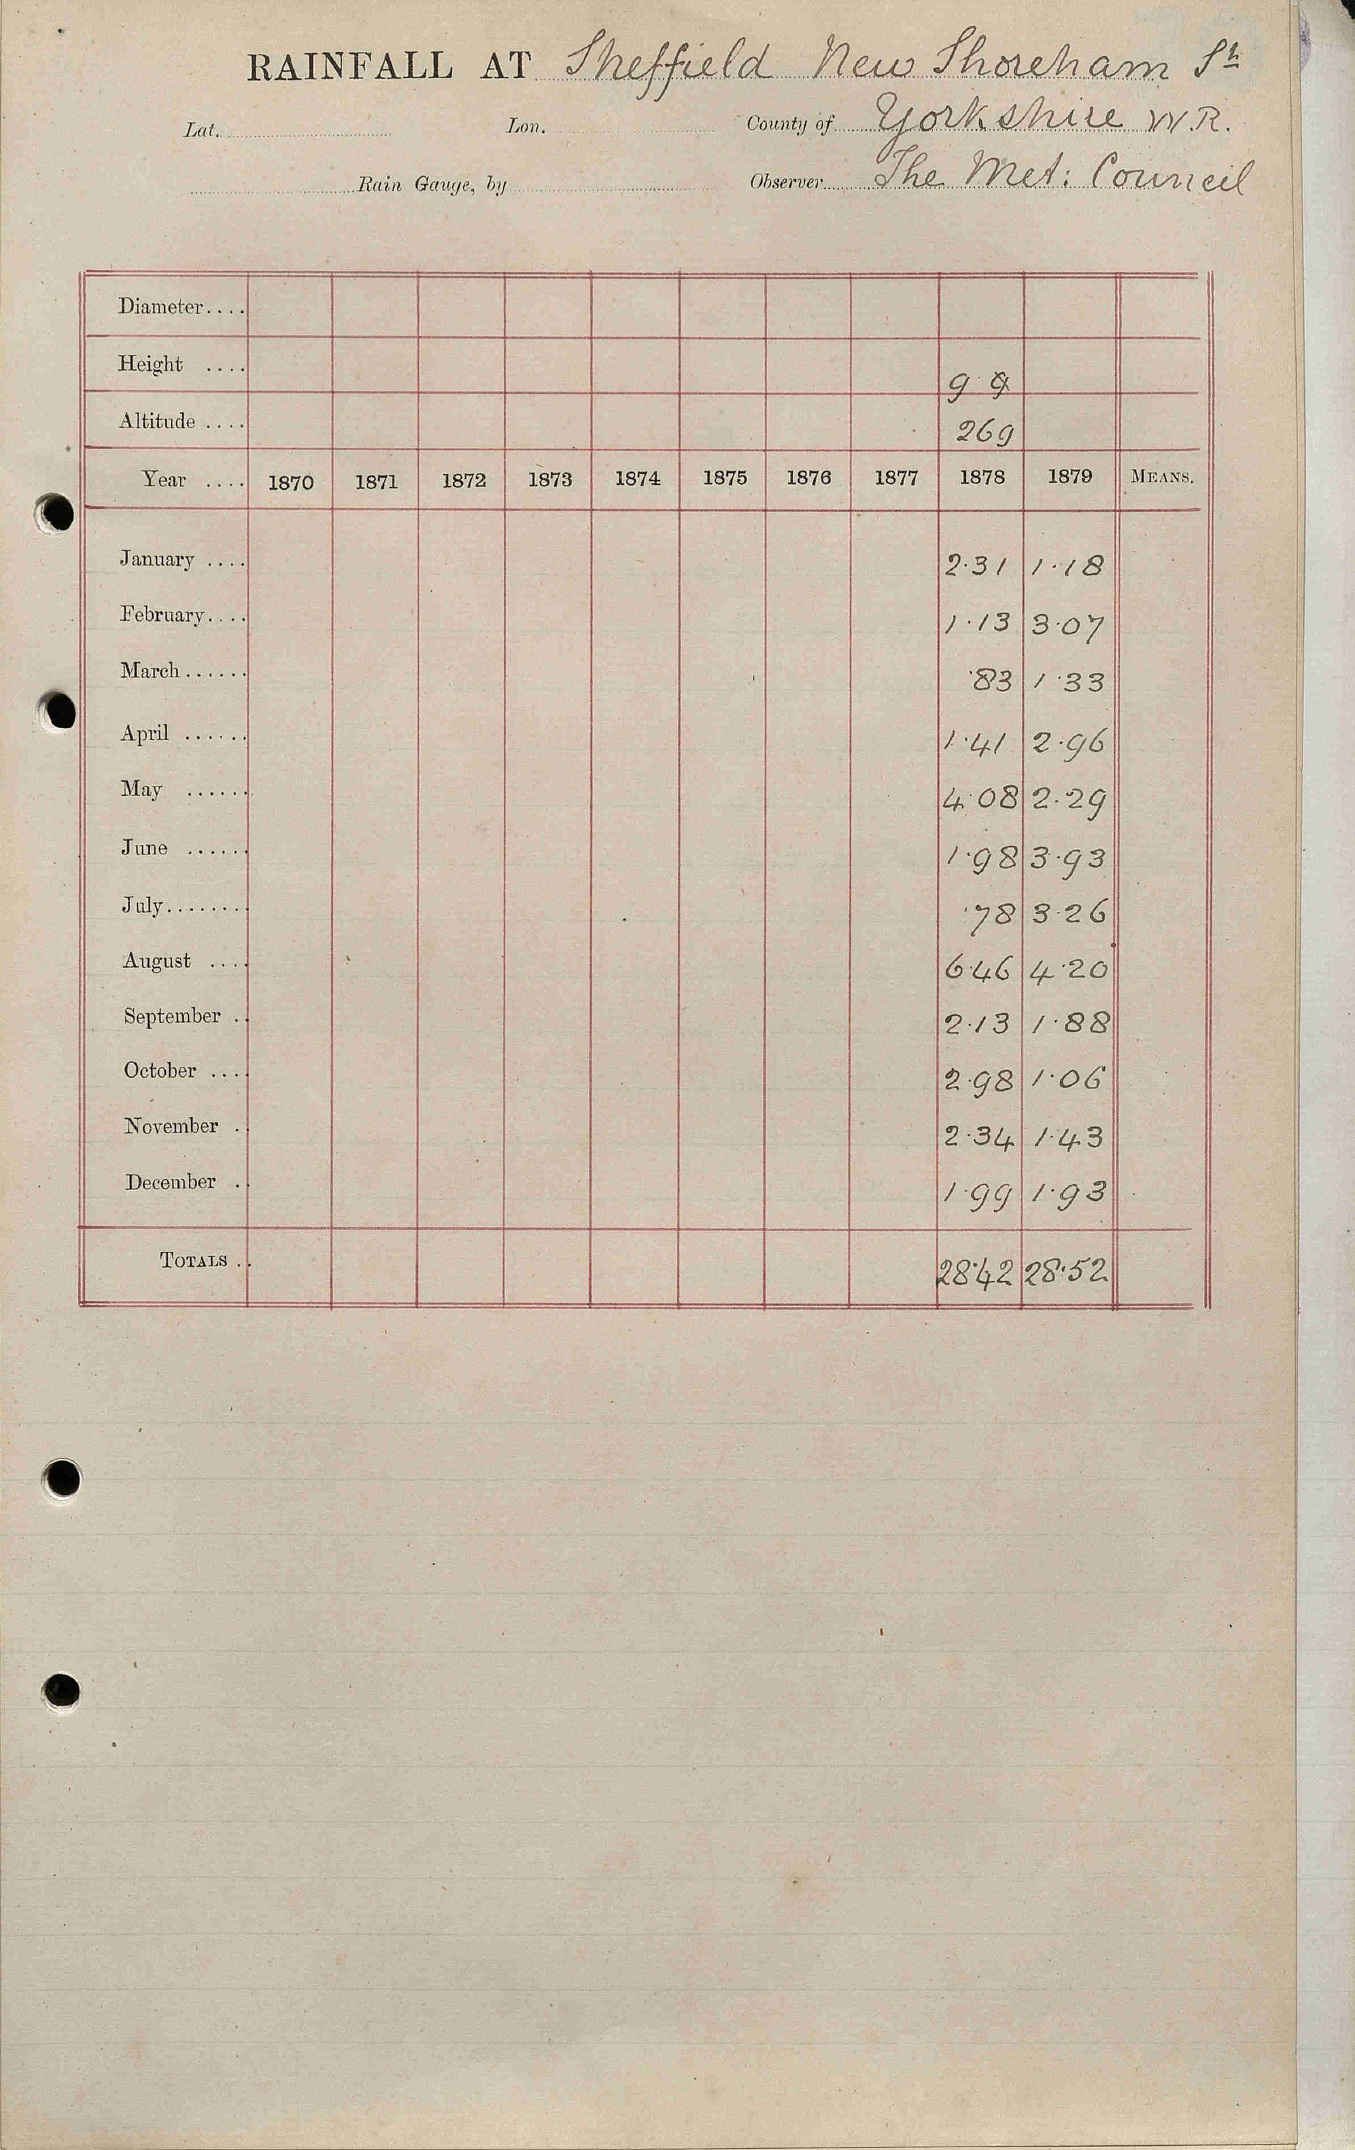 RAINFALL AT Sheffield New Shoreham St
Lat. Lon. County of Yorkshire W.R.
Rain Gauge, by Observer The Met: Council
Diameter....
Height .... 9 9
Altitude .... 269
Year .... 1870 1871 1872 1873 1874 1875 1876 1877 1878 1879 MEANS.
January .... 2.31 1.18
February.... 1.13 3.07
March...... .83 1.33
April ...... 1.41 2.96
May ...... 4.08 2.29
June ...... 1.98 3.93
July....... .78 3.26
August .... 6.46 4.20
September .. 2.13 1.88
October .... 2.98 1.06
November . 2.34 1.43
December . 1.99 1.93
TOTALS .. 28.42 28.52